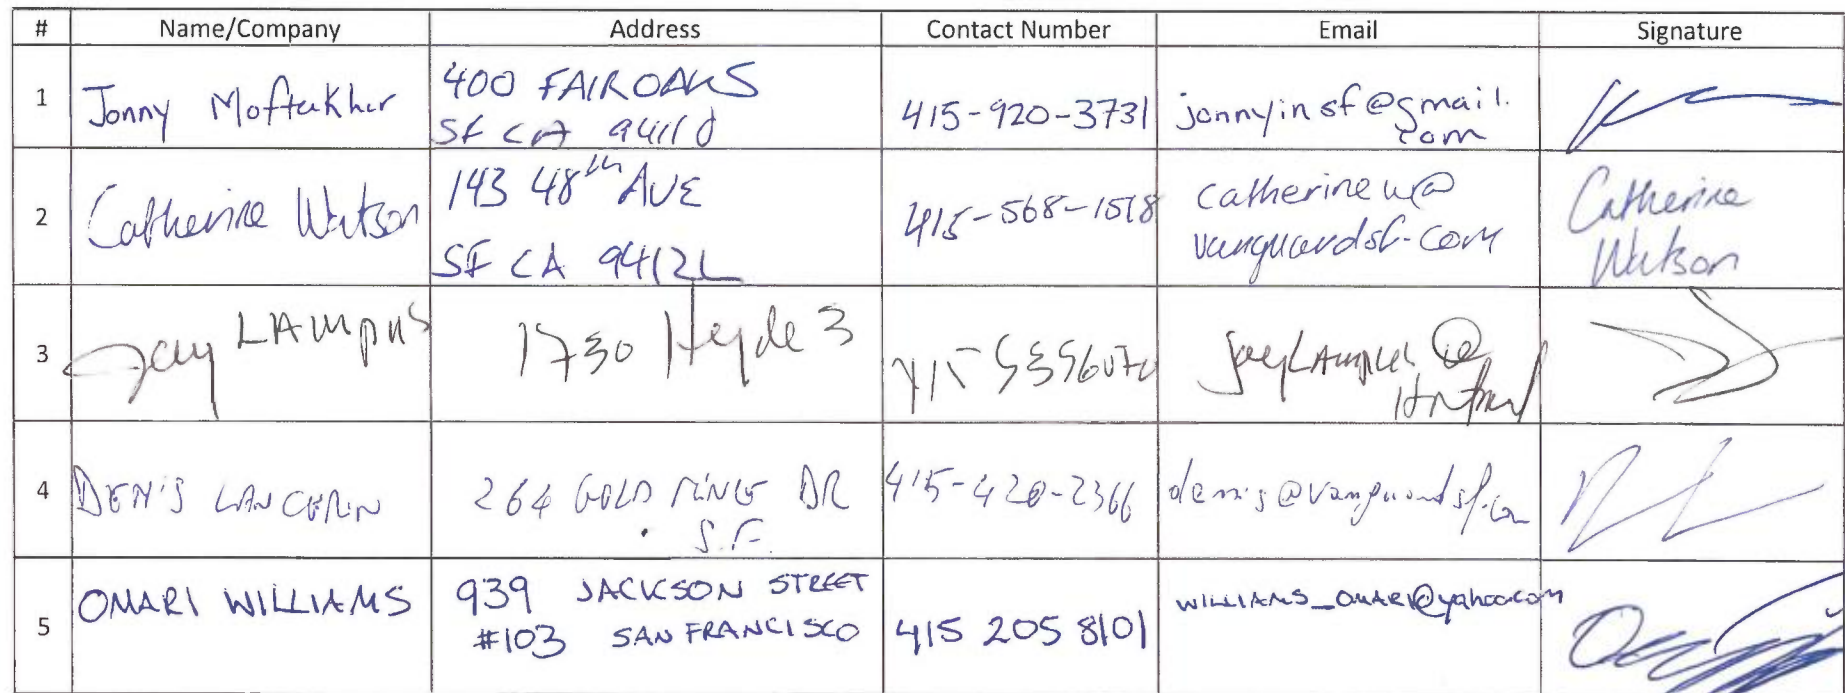 # Name/Company Address Contact Number Email Signature
1 Jonny Moftakhar 400 FAIROAKS SF CA 94110 415-920-3731 jonnyinsf@gmail.com
2 Catherine Watson 143 48th AVE SF CA 94121 415-568-1518 catherinew@vanguardsf.com Catherine Watson
3 Jay 1730 Hyde 3
4 DENIS 264 GOLD MINE DR S.F. 415-420-2366 denis@vanguardsf.com
5 OMARI WILLIAMS 939 JACKSON STREET #103 SAN FRANCISCO 415 205 8101 WILLIAMS_OMARI@yahoo.com